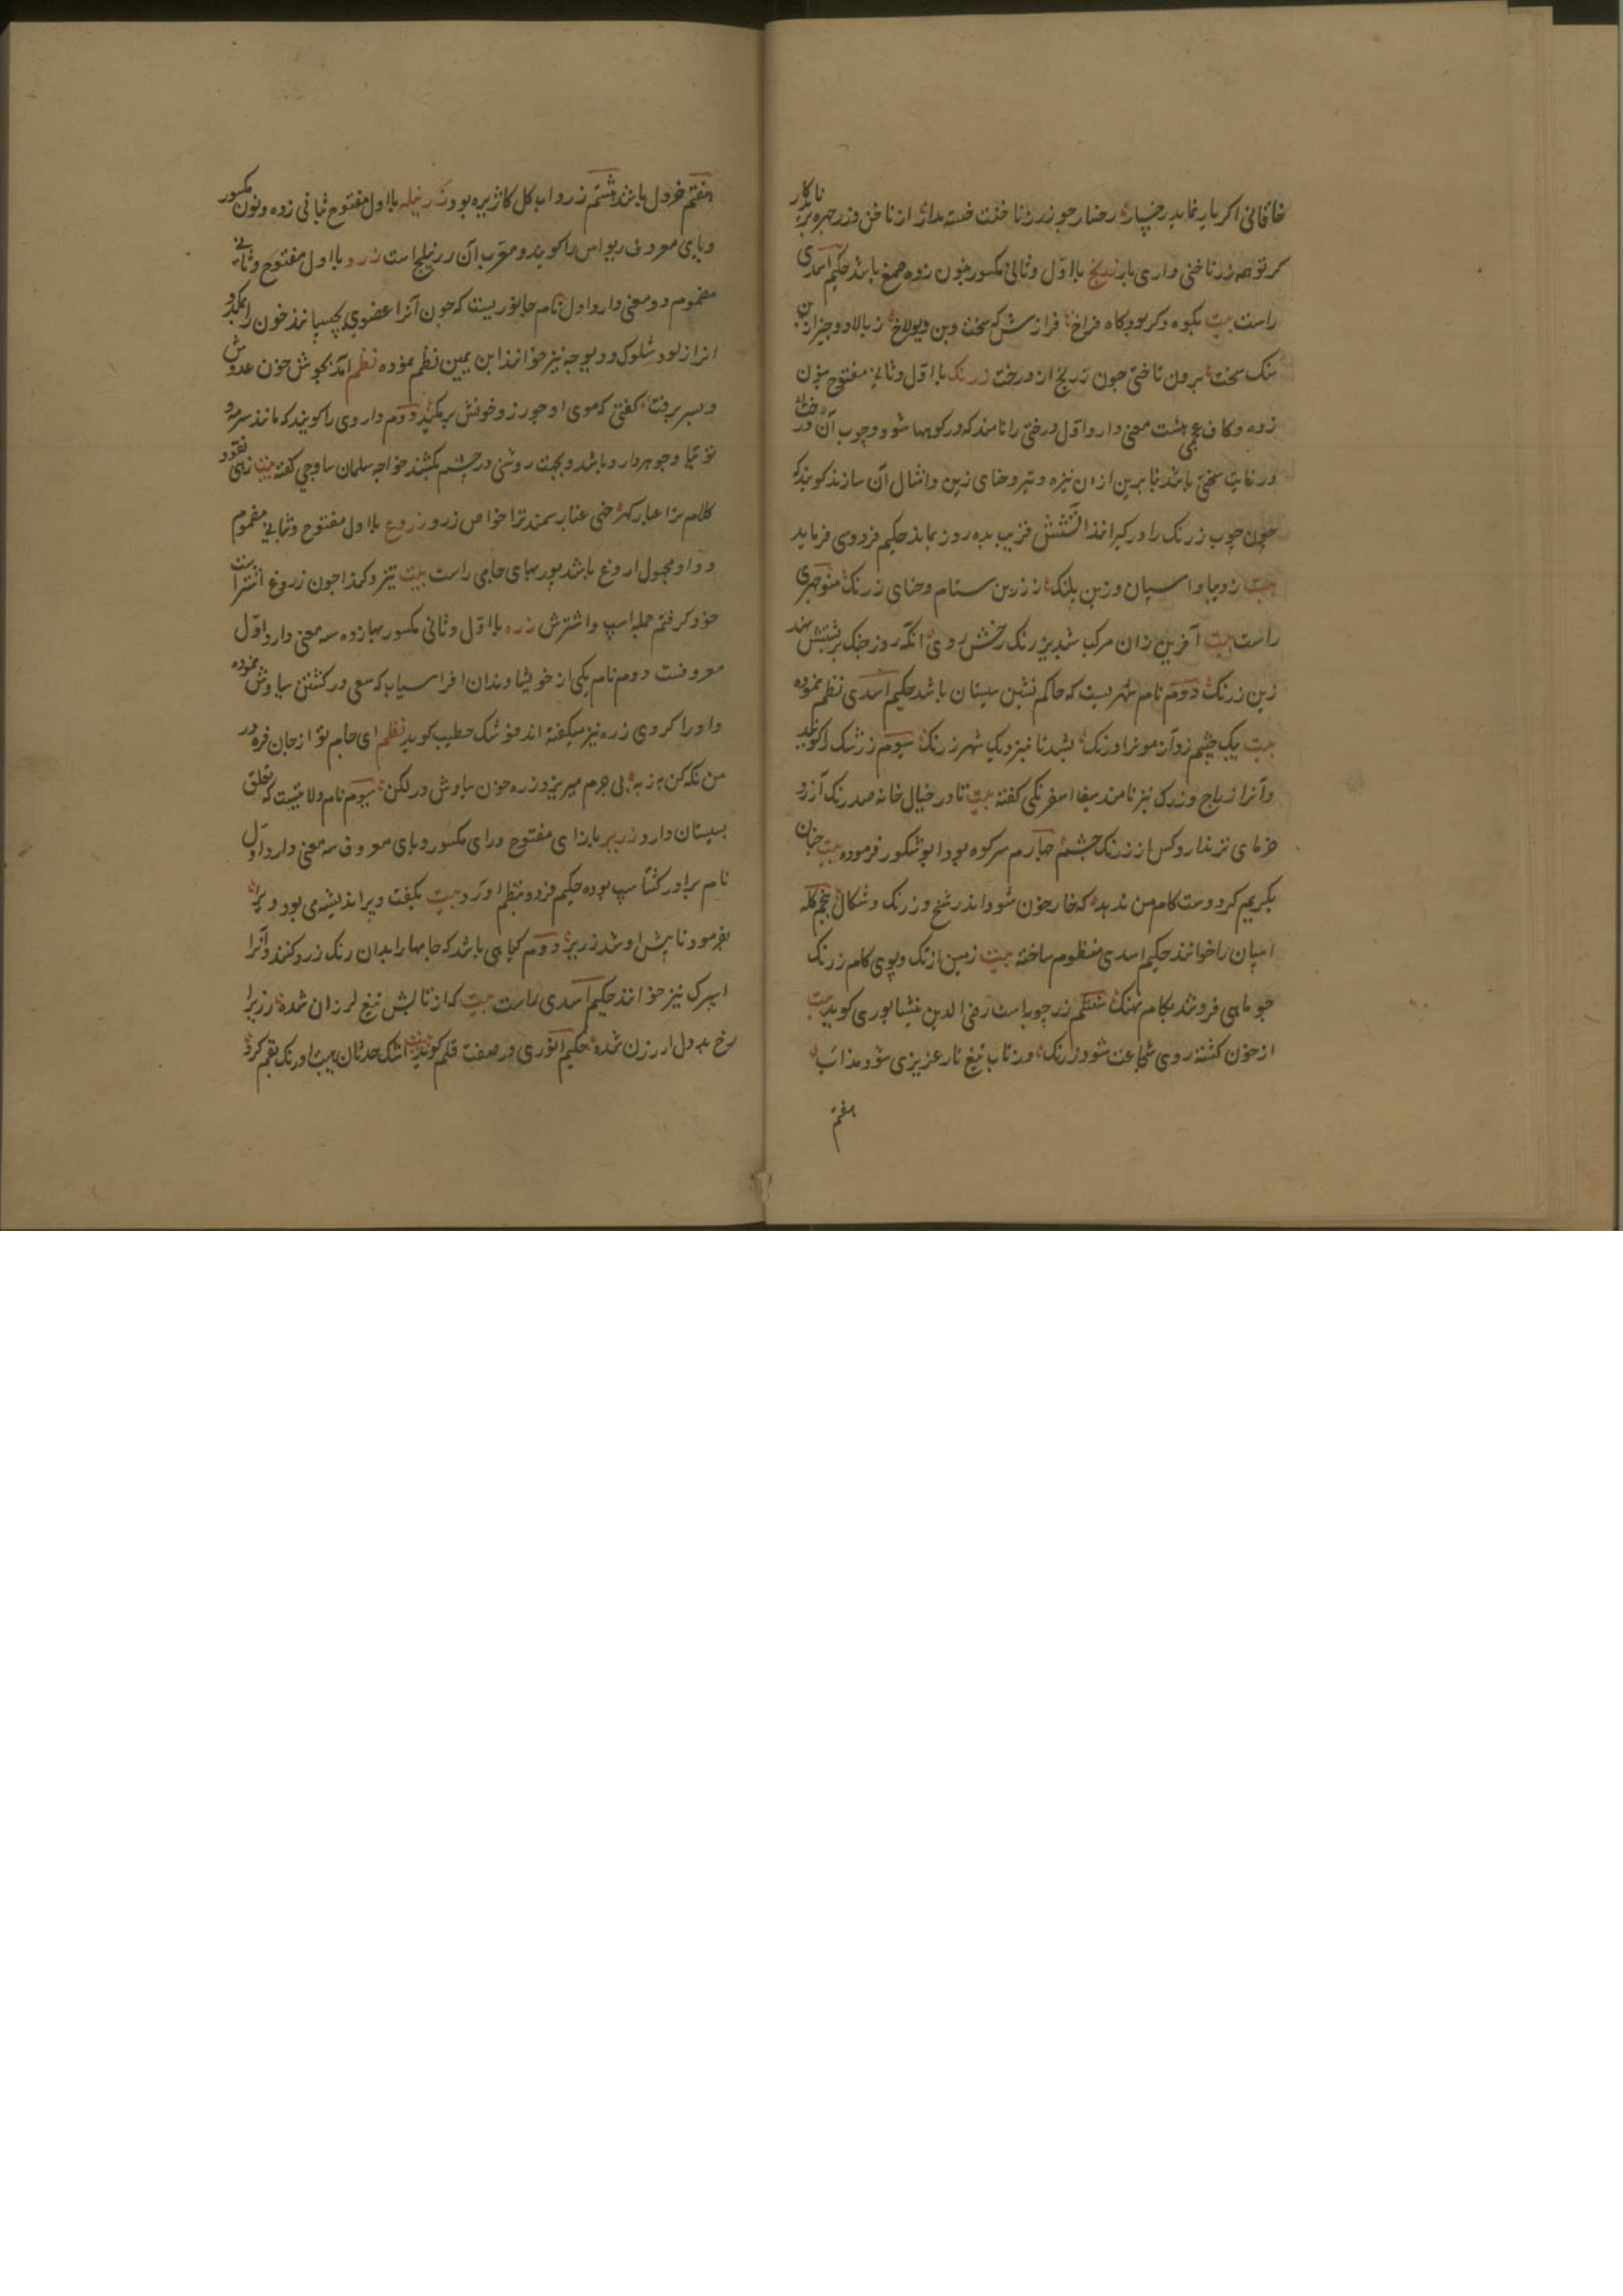 خاقانی اکر یار نماید رخسار رخسار چو زر ز ناخنت خسته مدار از ناخن و زر چهره نابکار
کر تو همه زر ناخنی داری یار زرنج با اول و ثانی مکسور بنون زده صمغ باشد حکیم اسدی
راست بیت بکوه و کر بود کاه فراخ فرازش که سخت و بن دیولاخ ز بالا دو چیز از
سنک سخت برون تاختی چون زرنج از درخت زرنک با اول و ثانی مفتوح بنون
زده و کاف عجمی هشت معنی دارد اول درختی را نامند که در کوهها شود و چوب آن درخت
در غایت سختی باشد بنابرین از ان نیزه و تیر و حنای زین و امثال آن سازند کویند که
چون چوب زرنک را در کیرانند آتشش قریب بده روز بماند حکیم فردوسی فرماید
بیت ز دیبا و اسپان و زین پلنک ز زرین ستام و حنای زرنک منوچهری
راست بیت آفرین زان مرکب شبدیز رنک رخش روی آنکه روز جنک بر پشتش نهد
زین زرنک دوم نام شهریست که حاکم نشین سیستان باشد حکیم اسدی نظم نموده
بیت یک چشم زد از مونرا درنک بشد تا نزدیک شهر زرنک سیوم زرشک را کویند
و آنرا زراج و زرک نیز نامند سیف اسفرنکی کفته بیت تا در خیال خانه صد رنک آرزو
خرمای تر ندارد کس از زرنک چشم چهارم سر کوه بود ابو شکور فرموده بیت چنان
بکریم کر دوست کام من ندهد که خار خون شود اندر شخ و زرنک و شکال پنجم کله
اسپان را خوانند حکیم اسدی منظوم ساخته بیت زمین از تک و پوی کام زرنک
چو ماهی فروشد بکام نهنک ششم زرچوبه است رضی الدین نیشابوری کوید بیت
از خون کشته روی شجاعت شود زرنک وز تاب تیغ نار عزیزی شود مذاب
هفتم
هفتم خردل باشد هشتم زرد اب کل کاژیره بود زرنیله با اول مفتوح بثانی زده و نون مکسور
و یای معروف ریواس را کویند و معرب آن زرنیلج است زرو با اول مفتوح و ثانی
مضموم دو معنی دارد اول نام جانوریست که چون آنرا بعضوی بچسپانند خون را بمکد و
انرا زلو و شلوک و دیوچه نیز خوانند ابن یمین نظم نموده نظم آمد بجوش خون عدوش
و بسر برفت کفتی که موی او چو زرو خونش بر مکید دوم داروی را کویند که مانند سرمه و
توتیا و جوهردارو باشد و بجهت روشنی در چشم بکشند خواجه سلمان ساوجی کفته بیت زهی نقود
کلام ترا عیار کهر خهی غبار سمند ترا خواص زرو زروغ با اول مفتوح و ثانی مضموم
و واو مجهول اروغ باشد پور بهای جامی راست بیت تیز و کندا چون زروغ اشتر است
خود کرفتم جمله اسپ و اشترش زره با اول و ثانی مکسور بها زده سه معنی دارد اول
معروفست دوم نام یکی از خویشاوندان افراسیاب که سعی در کشتن سیاوش نموده
و او را کروی زره نیز میکفته اند فوشنک خطیب کوید نظم ای جام تو از جان فره در
من نکه کن به زبه بی جرم میریزد زره خون سیاوش در لکن سیوم نام ولایتیست که تعلق
بسیستان دارد زریر با زای مفتوح و رای مکسور و یای معروف سه معنی دارد اول
نام برادر کشتاسپ بوده حکیم فردو بنظم آورد بیت بکفت و پر اندیشه می بود دیر
بفرمود تا پیش او شد زریر دوم کیاهی باشد که جامها را بدان رنک زرد کنند و آنرا
اسپرک نیز خوانند حکیم اسدی راست بیت که از تابش تیغ لرزان شده زریر
رخ بد دل ارزن شده حکیم انوری در صفت قلم کوید بیت اشک حدثان بیبت اورنک بقم کرد